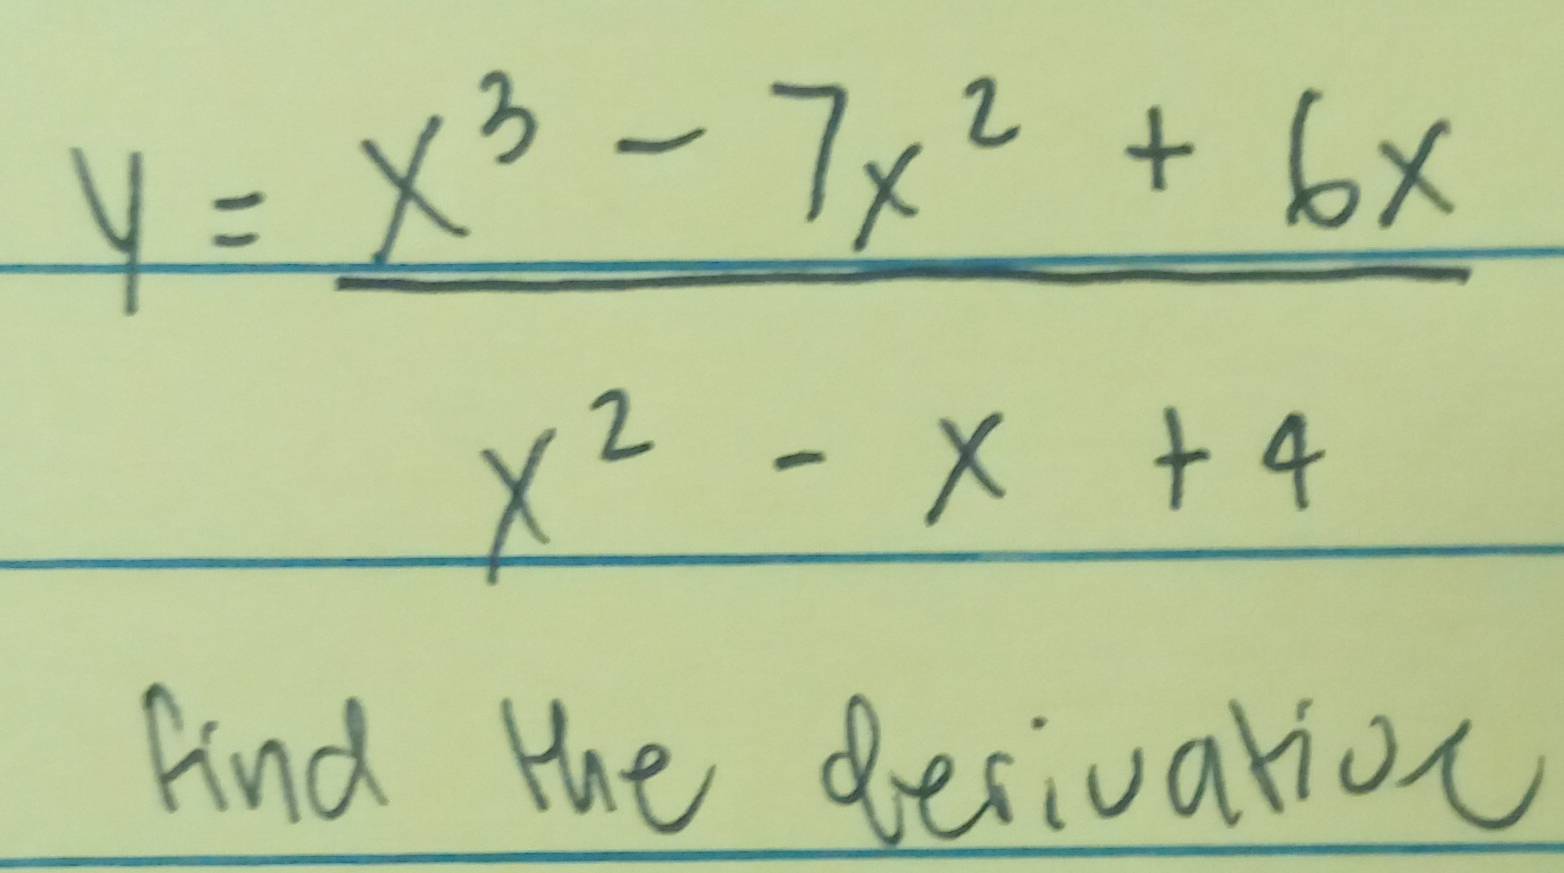 y = x³ - 7x² + 6x
x² - x + 4
find the derivative